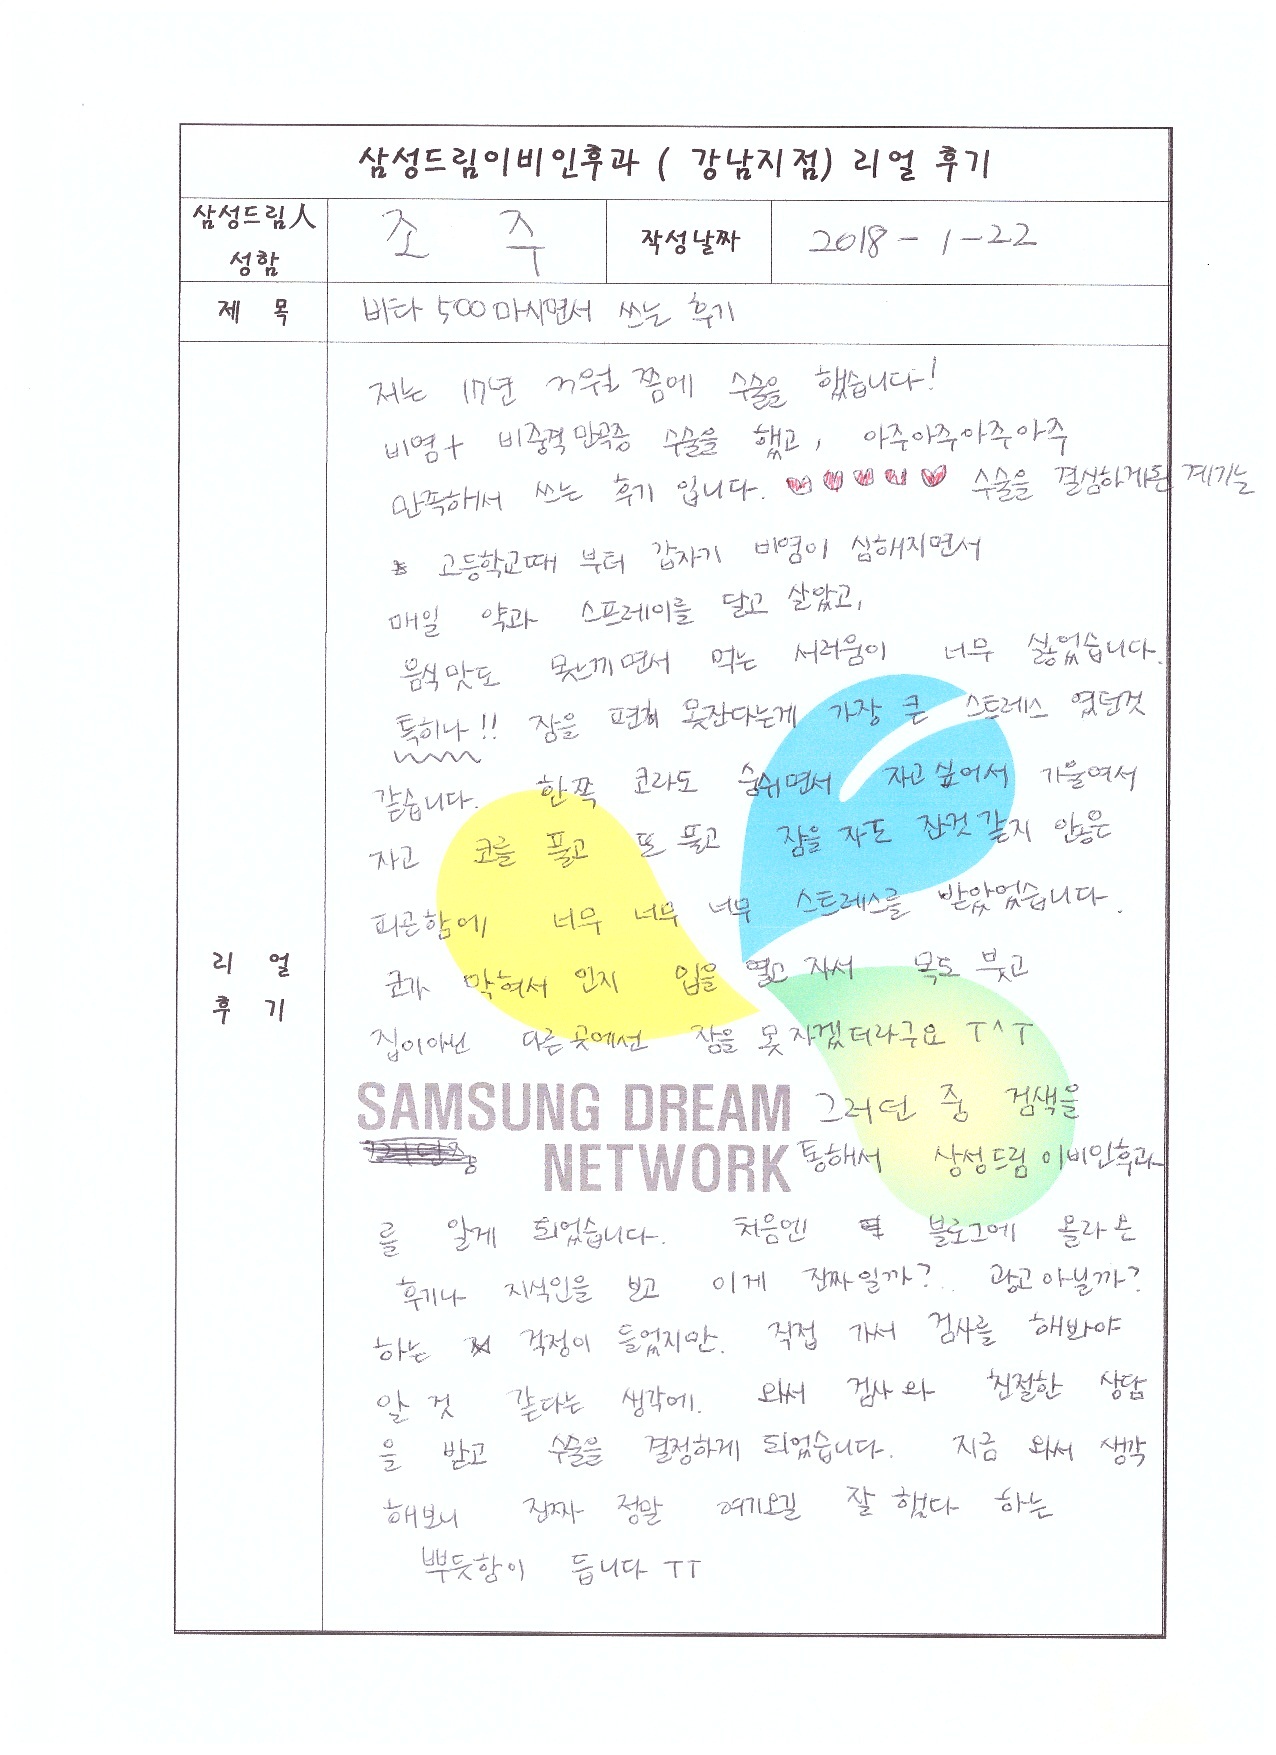 삼성드림이비인후과 ( 강남지점) 리얼 후기
삼성드림人 성함
조 주
작성날짜
2018-1-22
제 목
바타 500 마시면서 쓰는 후기
리 얼 후 기
저는 17년 겨울 쯤에 수술을 했습니다!
비염+ 비중격만곡증 수술을 했고, 아주아주아주아주
만족해서 쓰는 후기 입니다. ♥♥♥♥♥ 수술을 결심하게된 계기는
고등학교때 부터 갑자기 비염이 심해지면서
매일 약과 스프레이를 달고 살았고,
음식맛도 못느끼면서 먹는 서러움이 너무 싫었습니다.
특히나!! 잠을 편히 못잔다는게 가장 큰 스트레스 였던것
같습니다. 한쪽 코라도 숨쉬면서 자고싶어서 기울여서
자고 코를 풀고 또 풀고 잠을 자도 잔것 같지 안은
피곤함에 너무 너무 너무 스트레스를 받았었습니다.
코가 막혀서 인지 입을 열고 자서 목도 붓고
집이아닌 다른곳에선 잠을 못 자겠더라구요 T^T
SAMSUNG DREAM 그러던 중 검색을
NETWORK 통해서 삼성드림이비인후과
를 알게 되었습니다. 처음엔 블로그에 올라온
후기나 지식인을 보고 이게 진짜일까? 광고아닐까?
하는 걱정이 들었지만. 직접 가서 검사를 해봐야
알 것 같다는 생각에. 와서 검사와 친절한 상담
을 받고 수술을 결정하게 되었습니다. 지금 와서 생각
해보니 진짜 정말 여기오길 잘 했다 하는
뿌듯함이 듭니다 TT